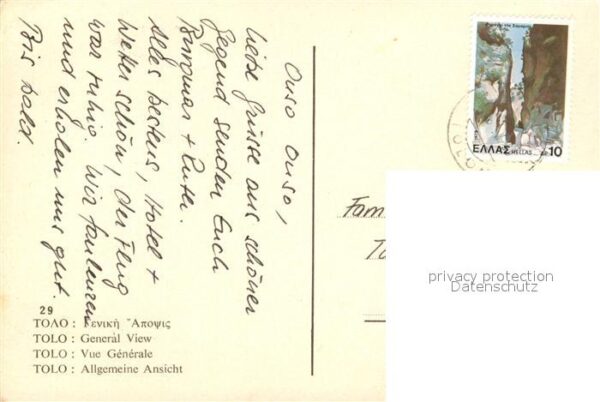 Ouso Ouso,
liebe Grüsse aus schöner
Gegend senden Euch
Burgmar + Peter.
Alles bestens, Hotel +
Wetter schön, der Flug
war ruhig. Wir faulenzen
und erholen uns gut.
Bis bald.
29
ΤΟΛΟ : Γενική Ἄποψις
TOLO : General View
TOLO : Vue Générale
TOLO : Allgemeine Ansicht
ΕΛΛΑΣ HELLAS 10
Fam
privacy protection
Datenschutz